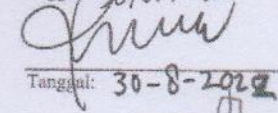 Tanggal: 30-8-2022